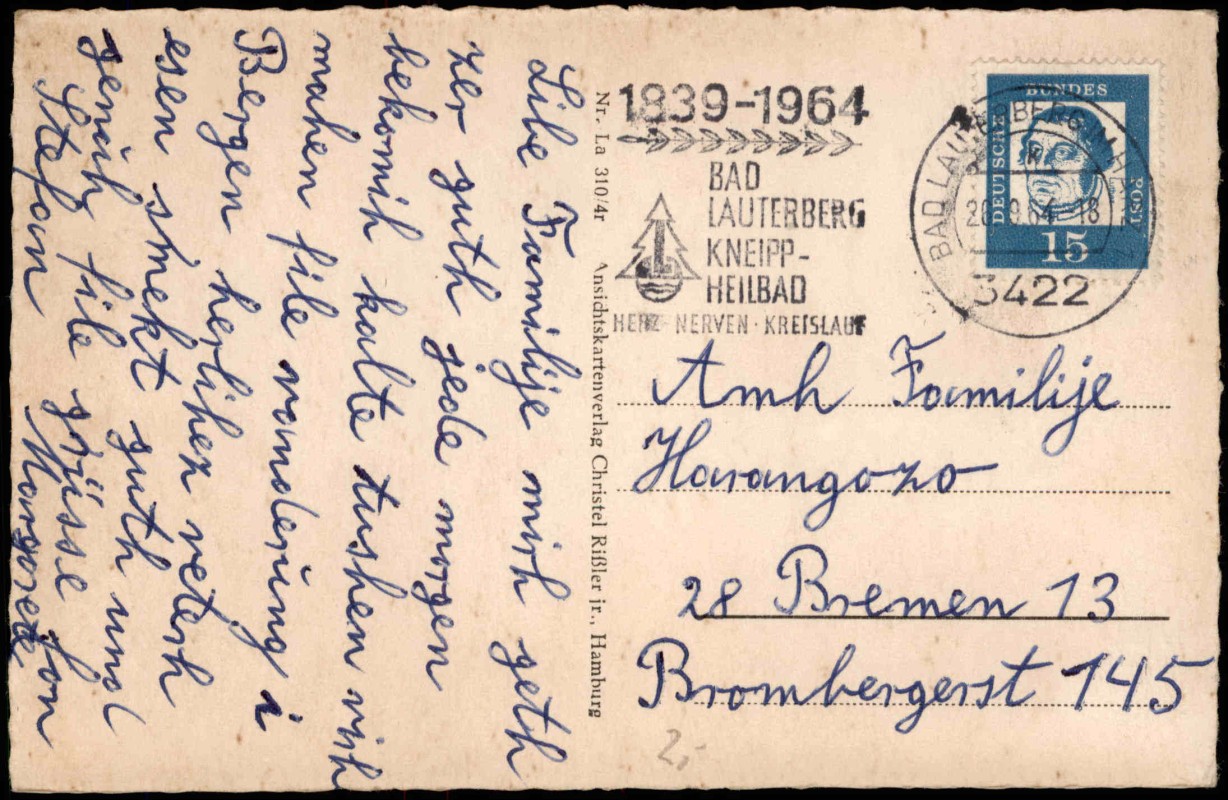 Libe Familije mirh geth
her guth jede morgen
bekomih kalte tushen wirh
mahen file wanderung i
Bergen herliher weterh
esen smekt guth und
genüh file grüsse fon
Stefaan Margarete
Nr. La 310/4r Ansichtskartenverlag Christel Rißler jr., Hamburg
1839-1964
BAD
LAUTERBERG
KNEIPP-
HEILBAD
HERZ · NERVEN · KREISLAUF
DEUTSCHE
BUNDES
POST
15
BAD LAUTERBERG
3422
Amh Familije
Harangozo
28 Bremen 13
Brombergerst 145
2,-